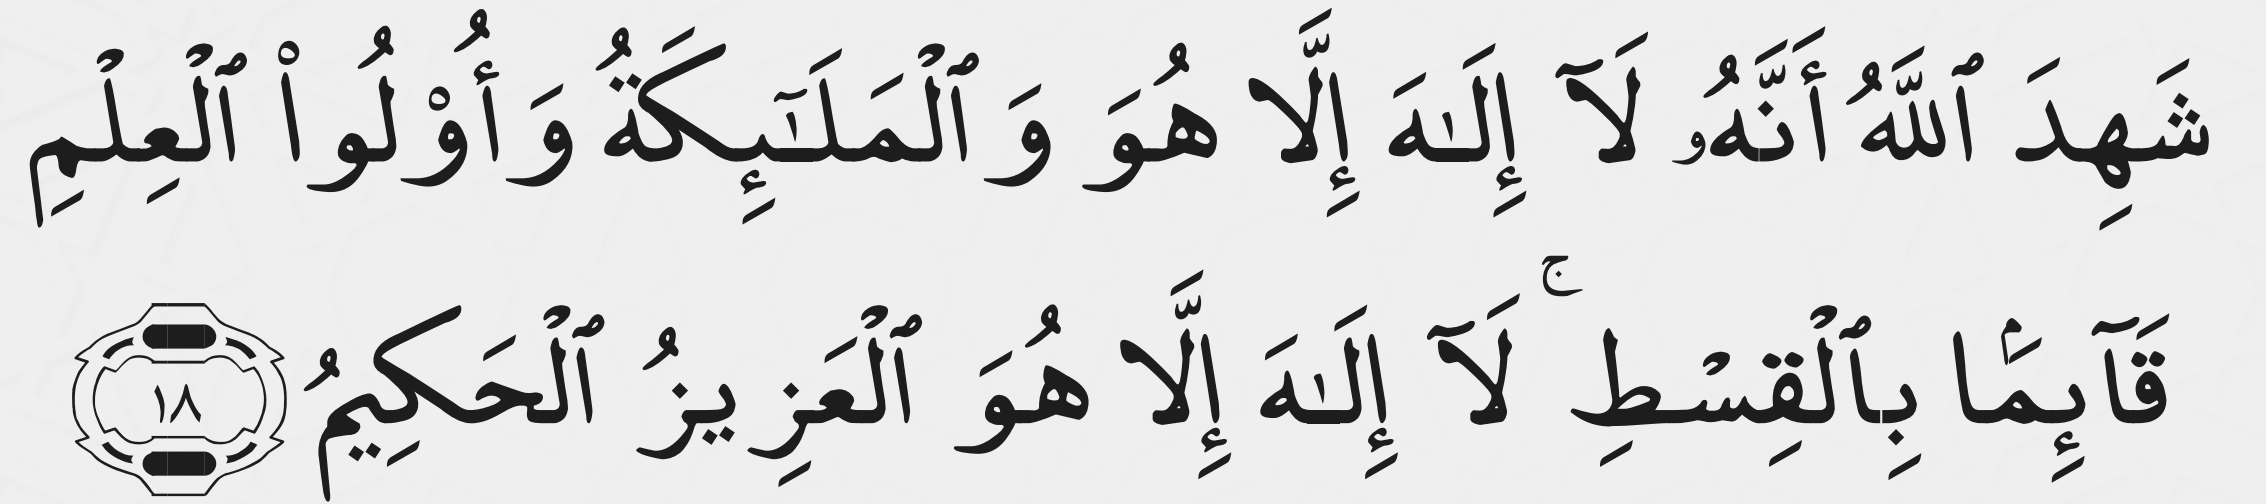 شَهِدَ ٱللَّهُ أَنَّهُۥ لَآ إِلَـٰهَ إِلَّا هُوَ وَٱلْمَلَـٰٓئِكَةُ وَأُو۟لُوا۟ ٱلْعِلْمِ
قَآئِمًۢا بِٱلْقِسْطِ ۚ لَآ إِلَـٰهَ إِلَّا هُوَ ٱلْعَزِيزُ ٱلْحَكِيمُ ١٨